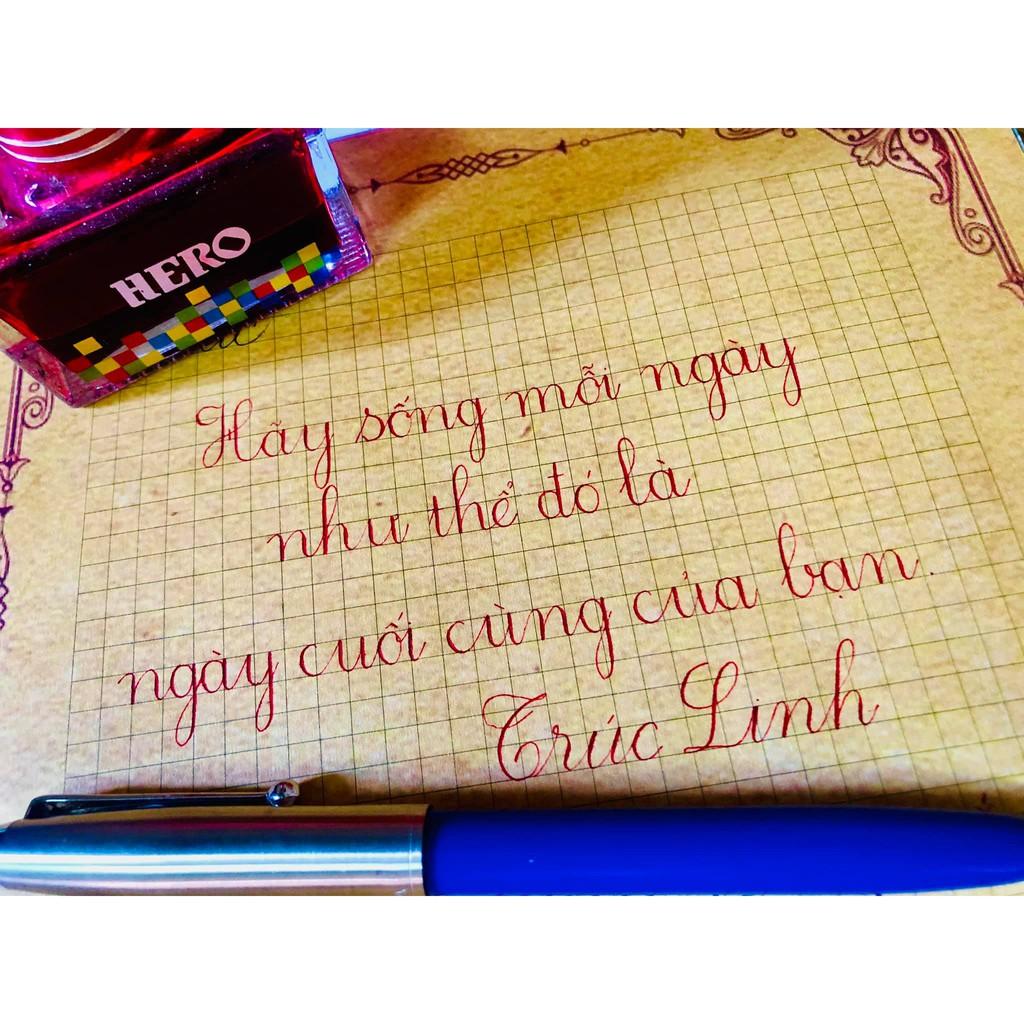 HERO
Hãy sống mỗi ngày
như thể đó là
ngày cuối cùng của bạn.
Trúc Linh